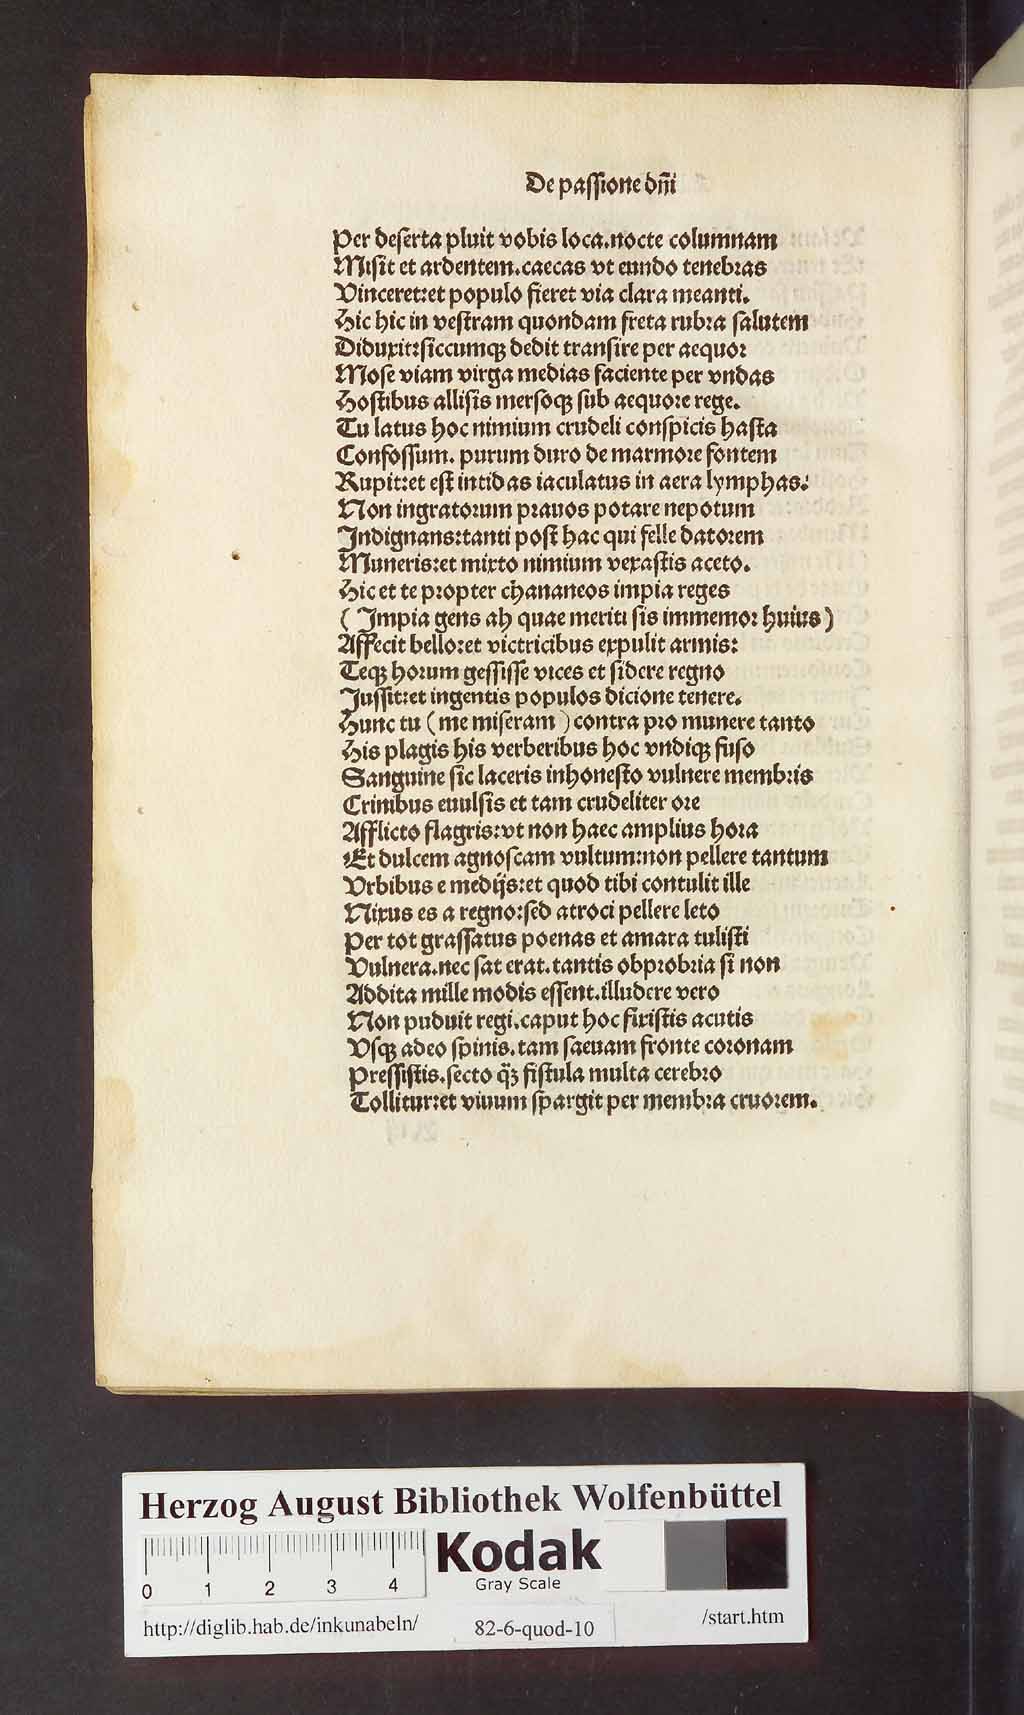 De passione dñi
Per deserta pluit vobis loca.nocte columnam
Misit et ardentem.caecas vt eundo tenebras
Vinceret:et populo fieret via clara meanti.
Hic hic in vestram quondam freta rubra salutem
Diduxit:siccumq; dedit transire per aequor
Mose viam virga medias faciente per vndas
Hostibus allisis mersoq; sub aequore rege.
Tu latus hoc nimium crudeli conspicis hasta
Confossum. purum duro de marmore fontem
Rupit:et est in tidas iaculatus in aera lymphas:
Non ingratorum prauos potare nepotum
Indignans:tanti post hac qui felle datorem
Muneris:et mixto nimium vexastis aceto.
Hic et te propter chananeos impia reges
(Impia gens ah quae meriti sis immemor huius)
Affecit bello:et victricibus expulit armis:
Teq; horum gessisse vices et sidere regno
Jussit:et ingentis populos dicione tenere.
Hunc tu (me miseram) contra pro munere tanto
His plagis his verberibus hoc vndiq; fuso
Sanguine sic laceris inhonesto vulnere membris
Crinibus euulsis et tam crudeliter ore
Afflicto flagris:vt non haec amplius hora
Et dulcem agnoscam vultum:non pellere tantum
Vrbibus e medijs:et quod tibi contulit ille
Nixus es a regno:sed atroci pellere leto
Per tot grassatus poenas et amara tulisti
Vulnera.nec sat erat.tantis obprobria si non
Addita mille modis essent.illudere vero
Non puduit regi.caput hoc fixistis acutis
Vsq; adeo spinis.tam saeuam fronte coronam
Pressistis.secto q̃; fistula multa cerebro
Tollitur:et viuum spargit per membra cruorem.
Herzog August Bibliothek Wolfenbüttel
0 1 2 3 4
Kodak
Gray Scale
http://diglib.hab.de/inkunabeln/
82-6-quod-10
/start.htm